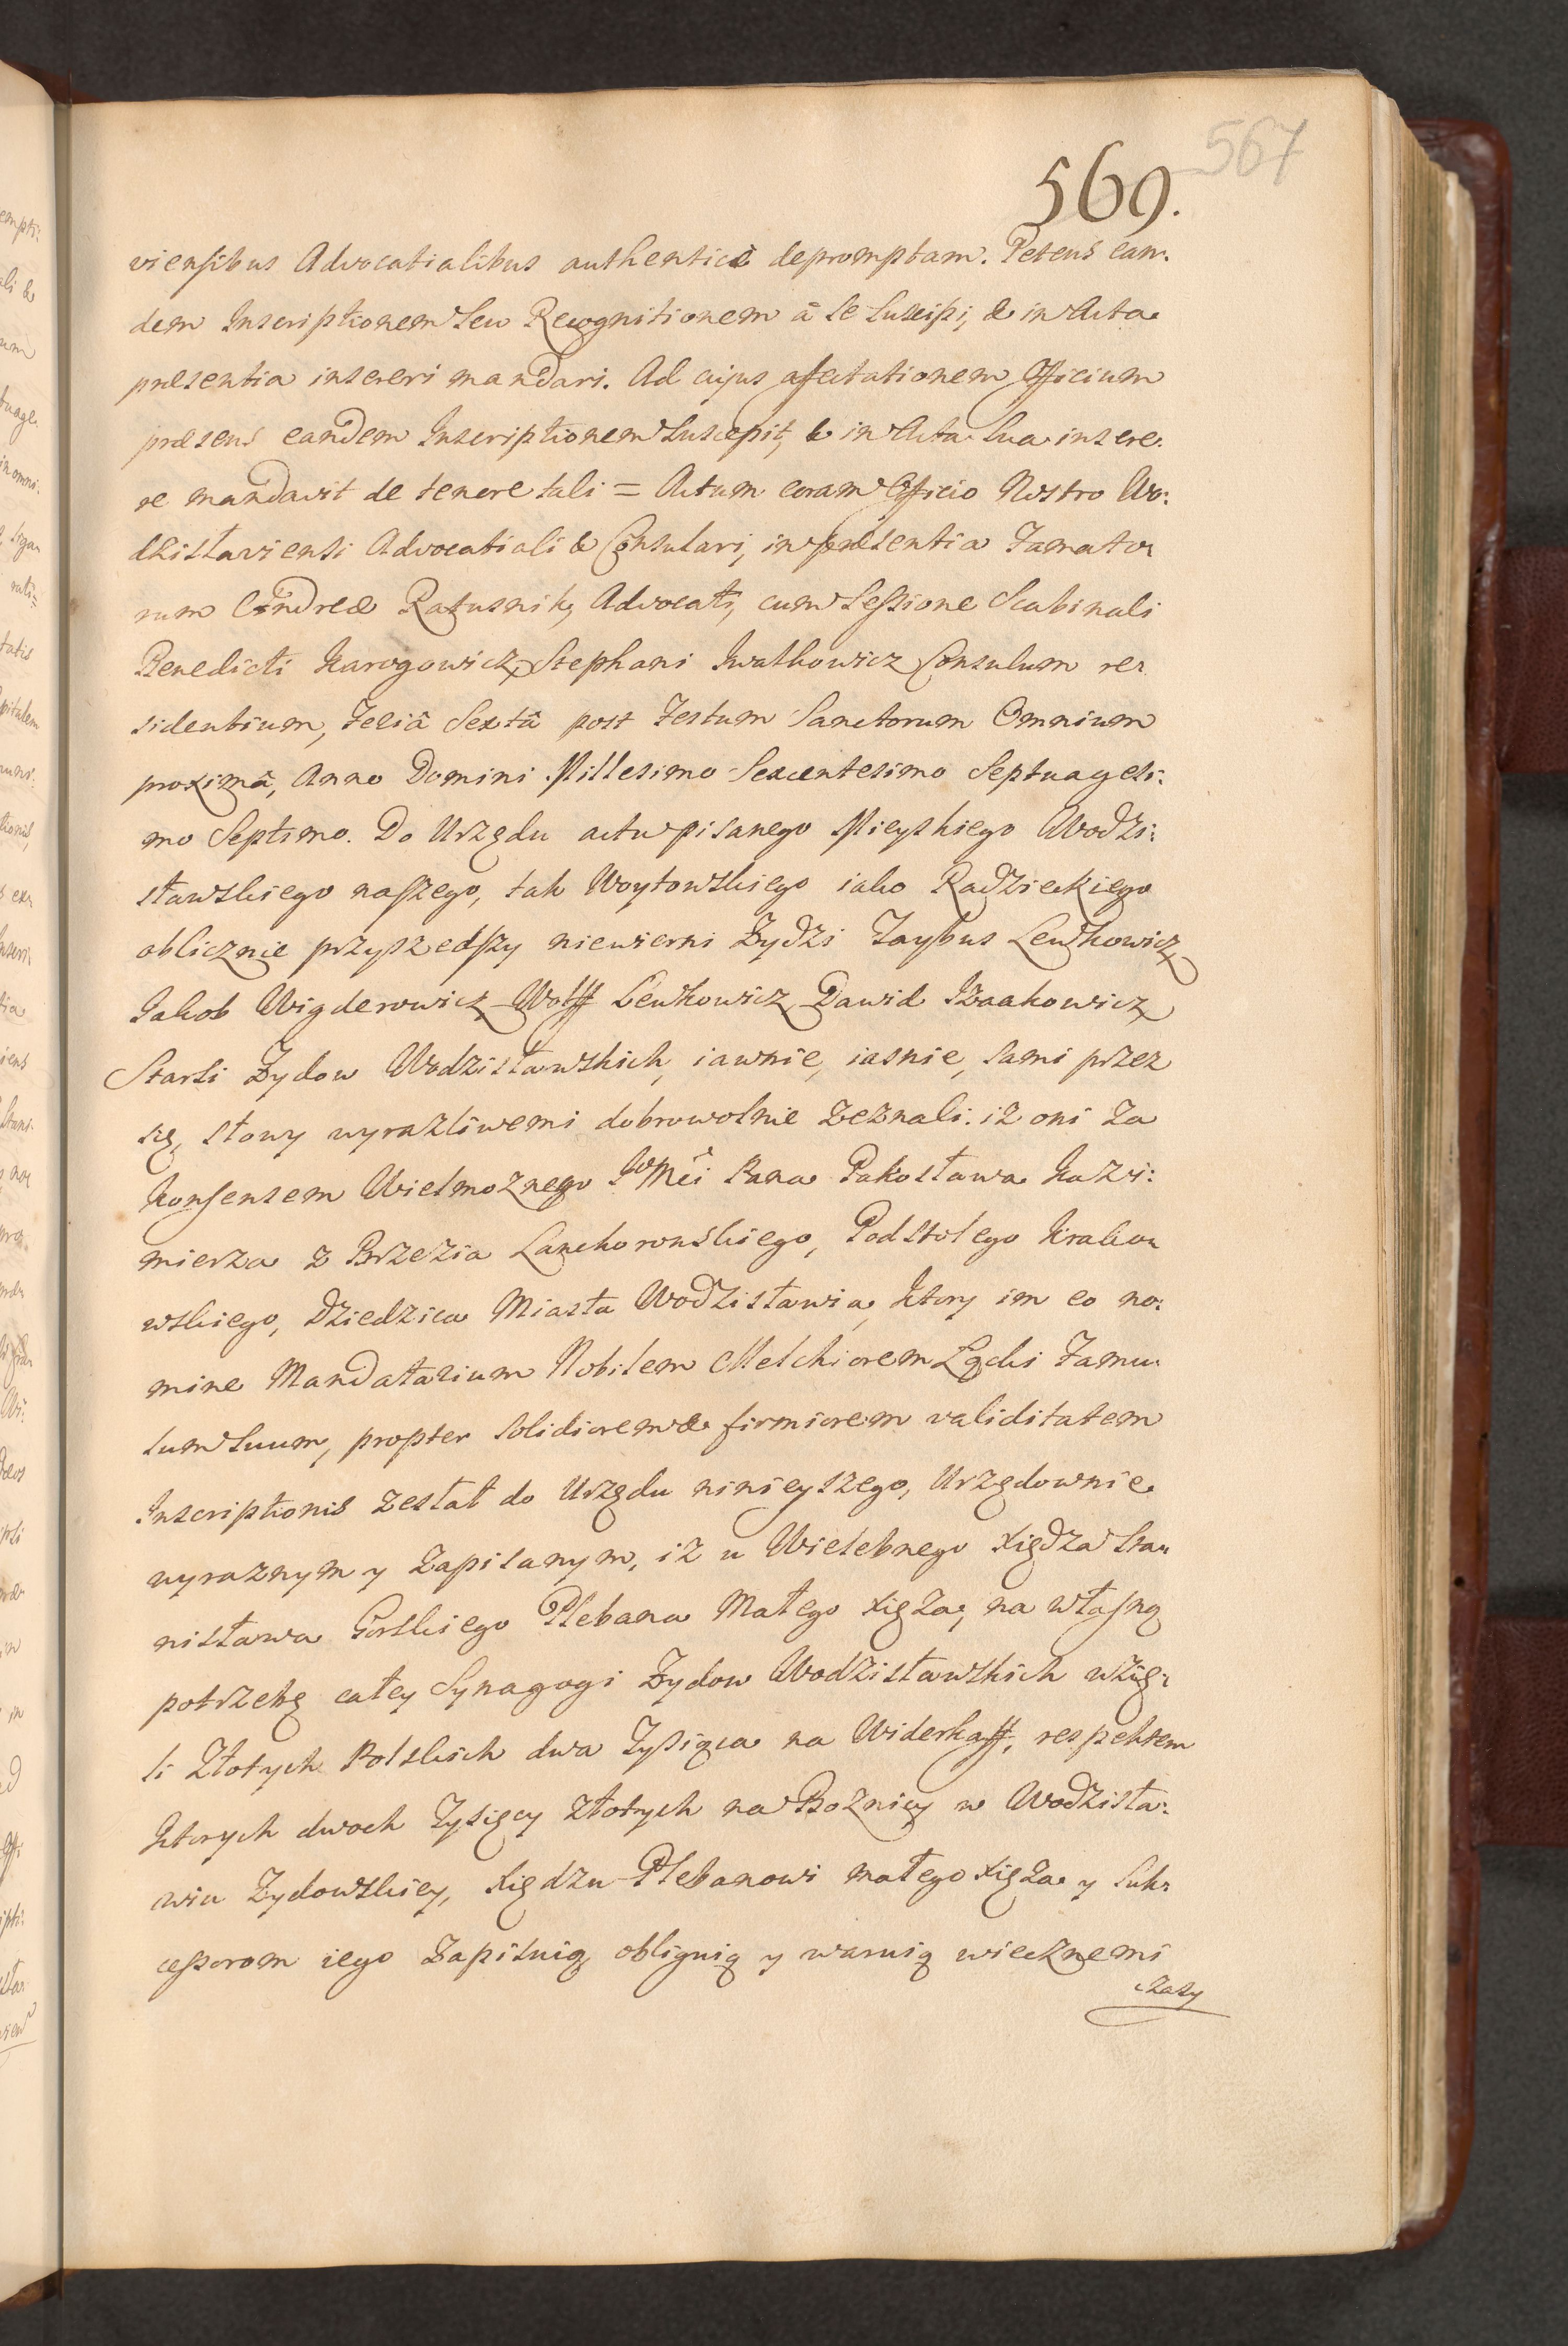 567
569.
viensibus Advocatialibus authenticè depromptam. Petens ean:
dem Inscriptionem seu Recognitionem à se suscipi, & in Acta
præsentia inscreri mandari. Ad cujus afectationem Officium
præsens eandem Inscriptionem suscepit, & in Acta sua insere:
re mandavit de tenore tali = Actum coram Officio Nostro Wo:
dzislaviensi Advocatiali & Consulari, in præsentia Famato:
rum Andreæ Ratusnik, Advocati, cum Sessione Scabinali
Benedicti Karogowicz, Stephani Iwatkowicz Consulum re:
sidentium, Feriâ Sextâ post Festum Sanctorum Omnium
proximâ, Anno Domini Millesimo Sexcentesimo Septuagesi:
mo Septimo. Do Urzędu actu pisanego Mieyskiego Wodzi:
sławskiego naszego, tak Woytowskiego iako Radzieckiego
oblicznie przyszedszy niewierni Żydzi Faybus Lewkowicz,
Jakob Wigderowicz, Wolff Lewkowicz, Dawid Izaakowicz,
Starsi Żydow Wodzisławskich, iawnie, iasnie, sami przez
się, słowy wyrazliwemi dobrowolnie zeznali: iż oni za
konsensem Wielmoznego Jo Mci Pana Pakosława Kazi:
mierza z Brzezia Lanckoronskiego, Podstolego Krako:
wskiego, Dziedzica Miasta Wodzisławia, ktory im eo no:
mine Mandatarium Nobilem Melchiorem Lęcki Famu:
lum suum, propter solidiorem & firmiorem validitatem
Inscriptionis zesłał do Urzędu ninieyszego, Urzędownie
wyraznym y zapisanym, iż u Wielebnego Xiędza Sta:
nisława Gorskiego Plebana Małego Xięża, na własną
potrzebę całey Synagogi Żydow Wodzisławskich wzię:
li Złotych Polskich dwa Tysiąca na Widerkaff, respektem
ktorych dwoch Tysięcy złotych na Boznicy w Wodzisła:
wiu Żydowskiey, Xiędzu Plebanowi małego Xięża y suk:
cessorom iego zapisuią, obliguią y waruią wiecznemi
czasy